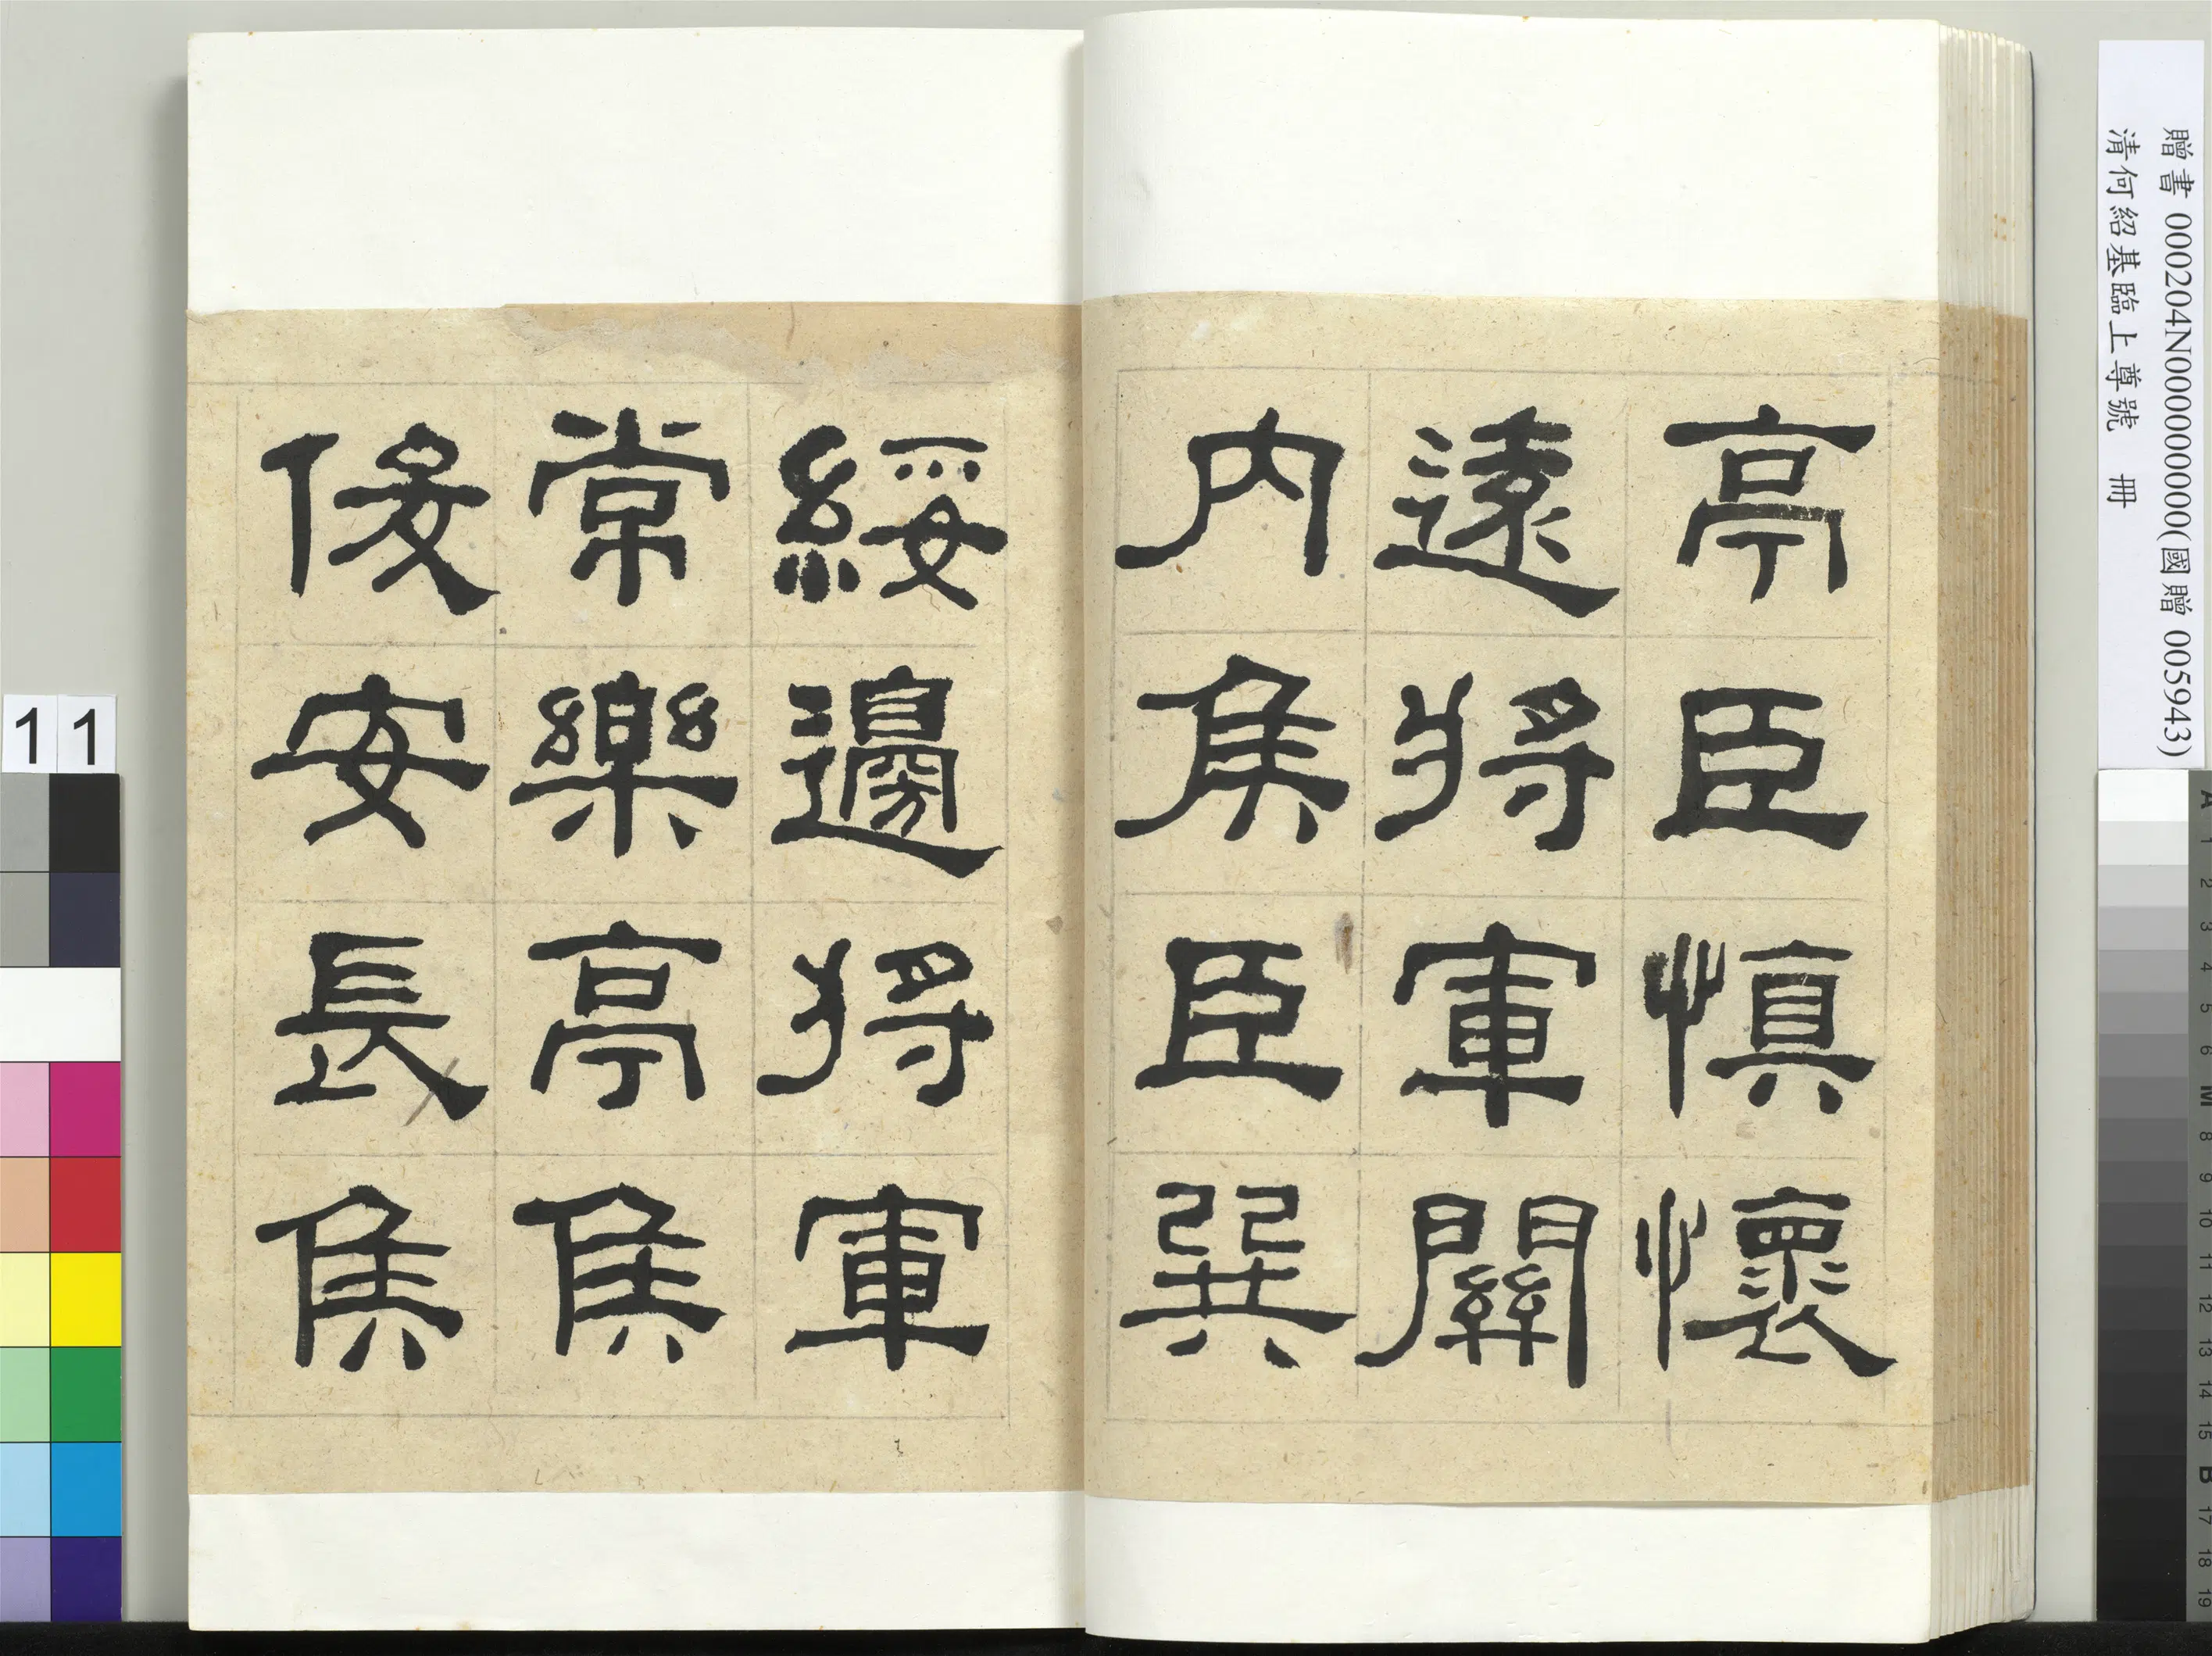 贈書 000204N000000000(國贈 005943)
清何紹基臨上尊號 冊
亭臣慎懷
遠將軍關
內侯臣巽
綏邊將軍
常樂亭侯
俊安長侯
11
A 1 2 3 4 5 6 M 8 9 10 11 12 13 14 15 B 17 18 19